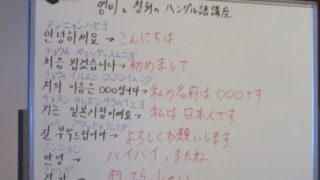 영미と 정희の ハングル語講座
アンニョンハセヨ
안녕하세요 → こんにちは
チョウム ペッケッスムニダ
처음 뵙겠습니다 → 初めまして
チョエ イルムン 〇〇〇イムニダ
저의 이름은 〇〇〇입니다 → 私の名前は 〇〇〇です
チョヌン イルボンサラミエヨ
저는 일본사람이에요 → 私は 日本人です
잘 부탁드립니다 → よろしくお願いします
アンニョン
안녕 → バイバイ, またね